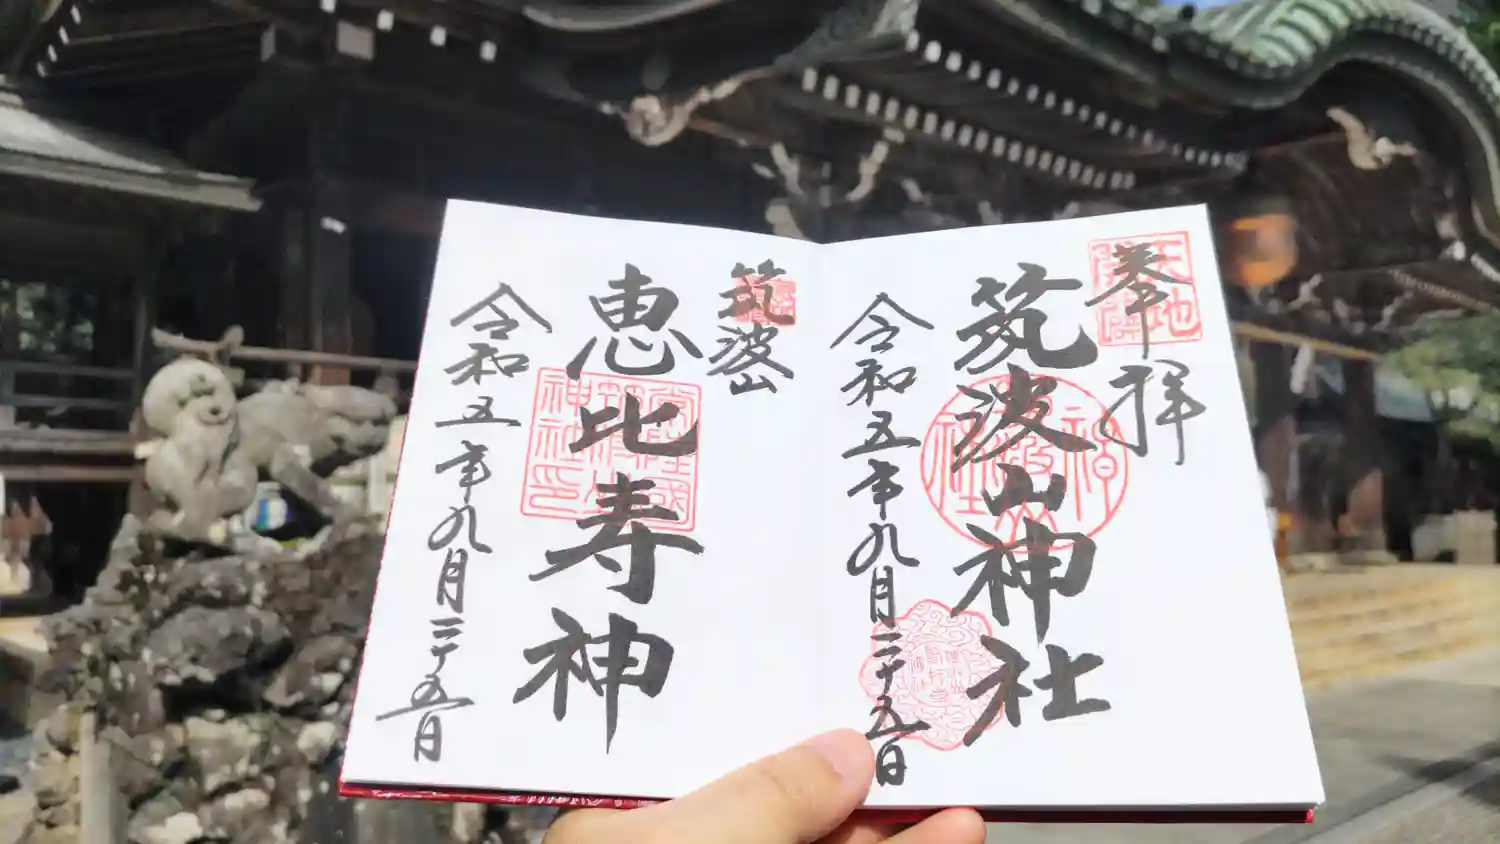 天地
奉拝
筑波山神社
令和五年九月二十五日
筑波山
恵比寿神
令和五年九月二十五日